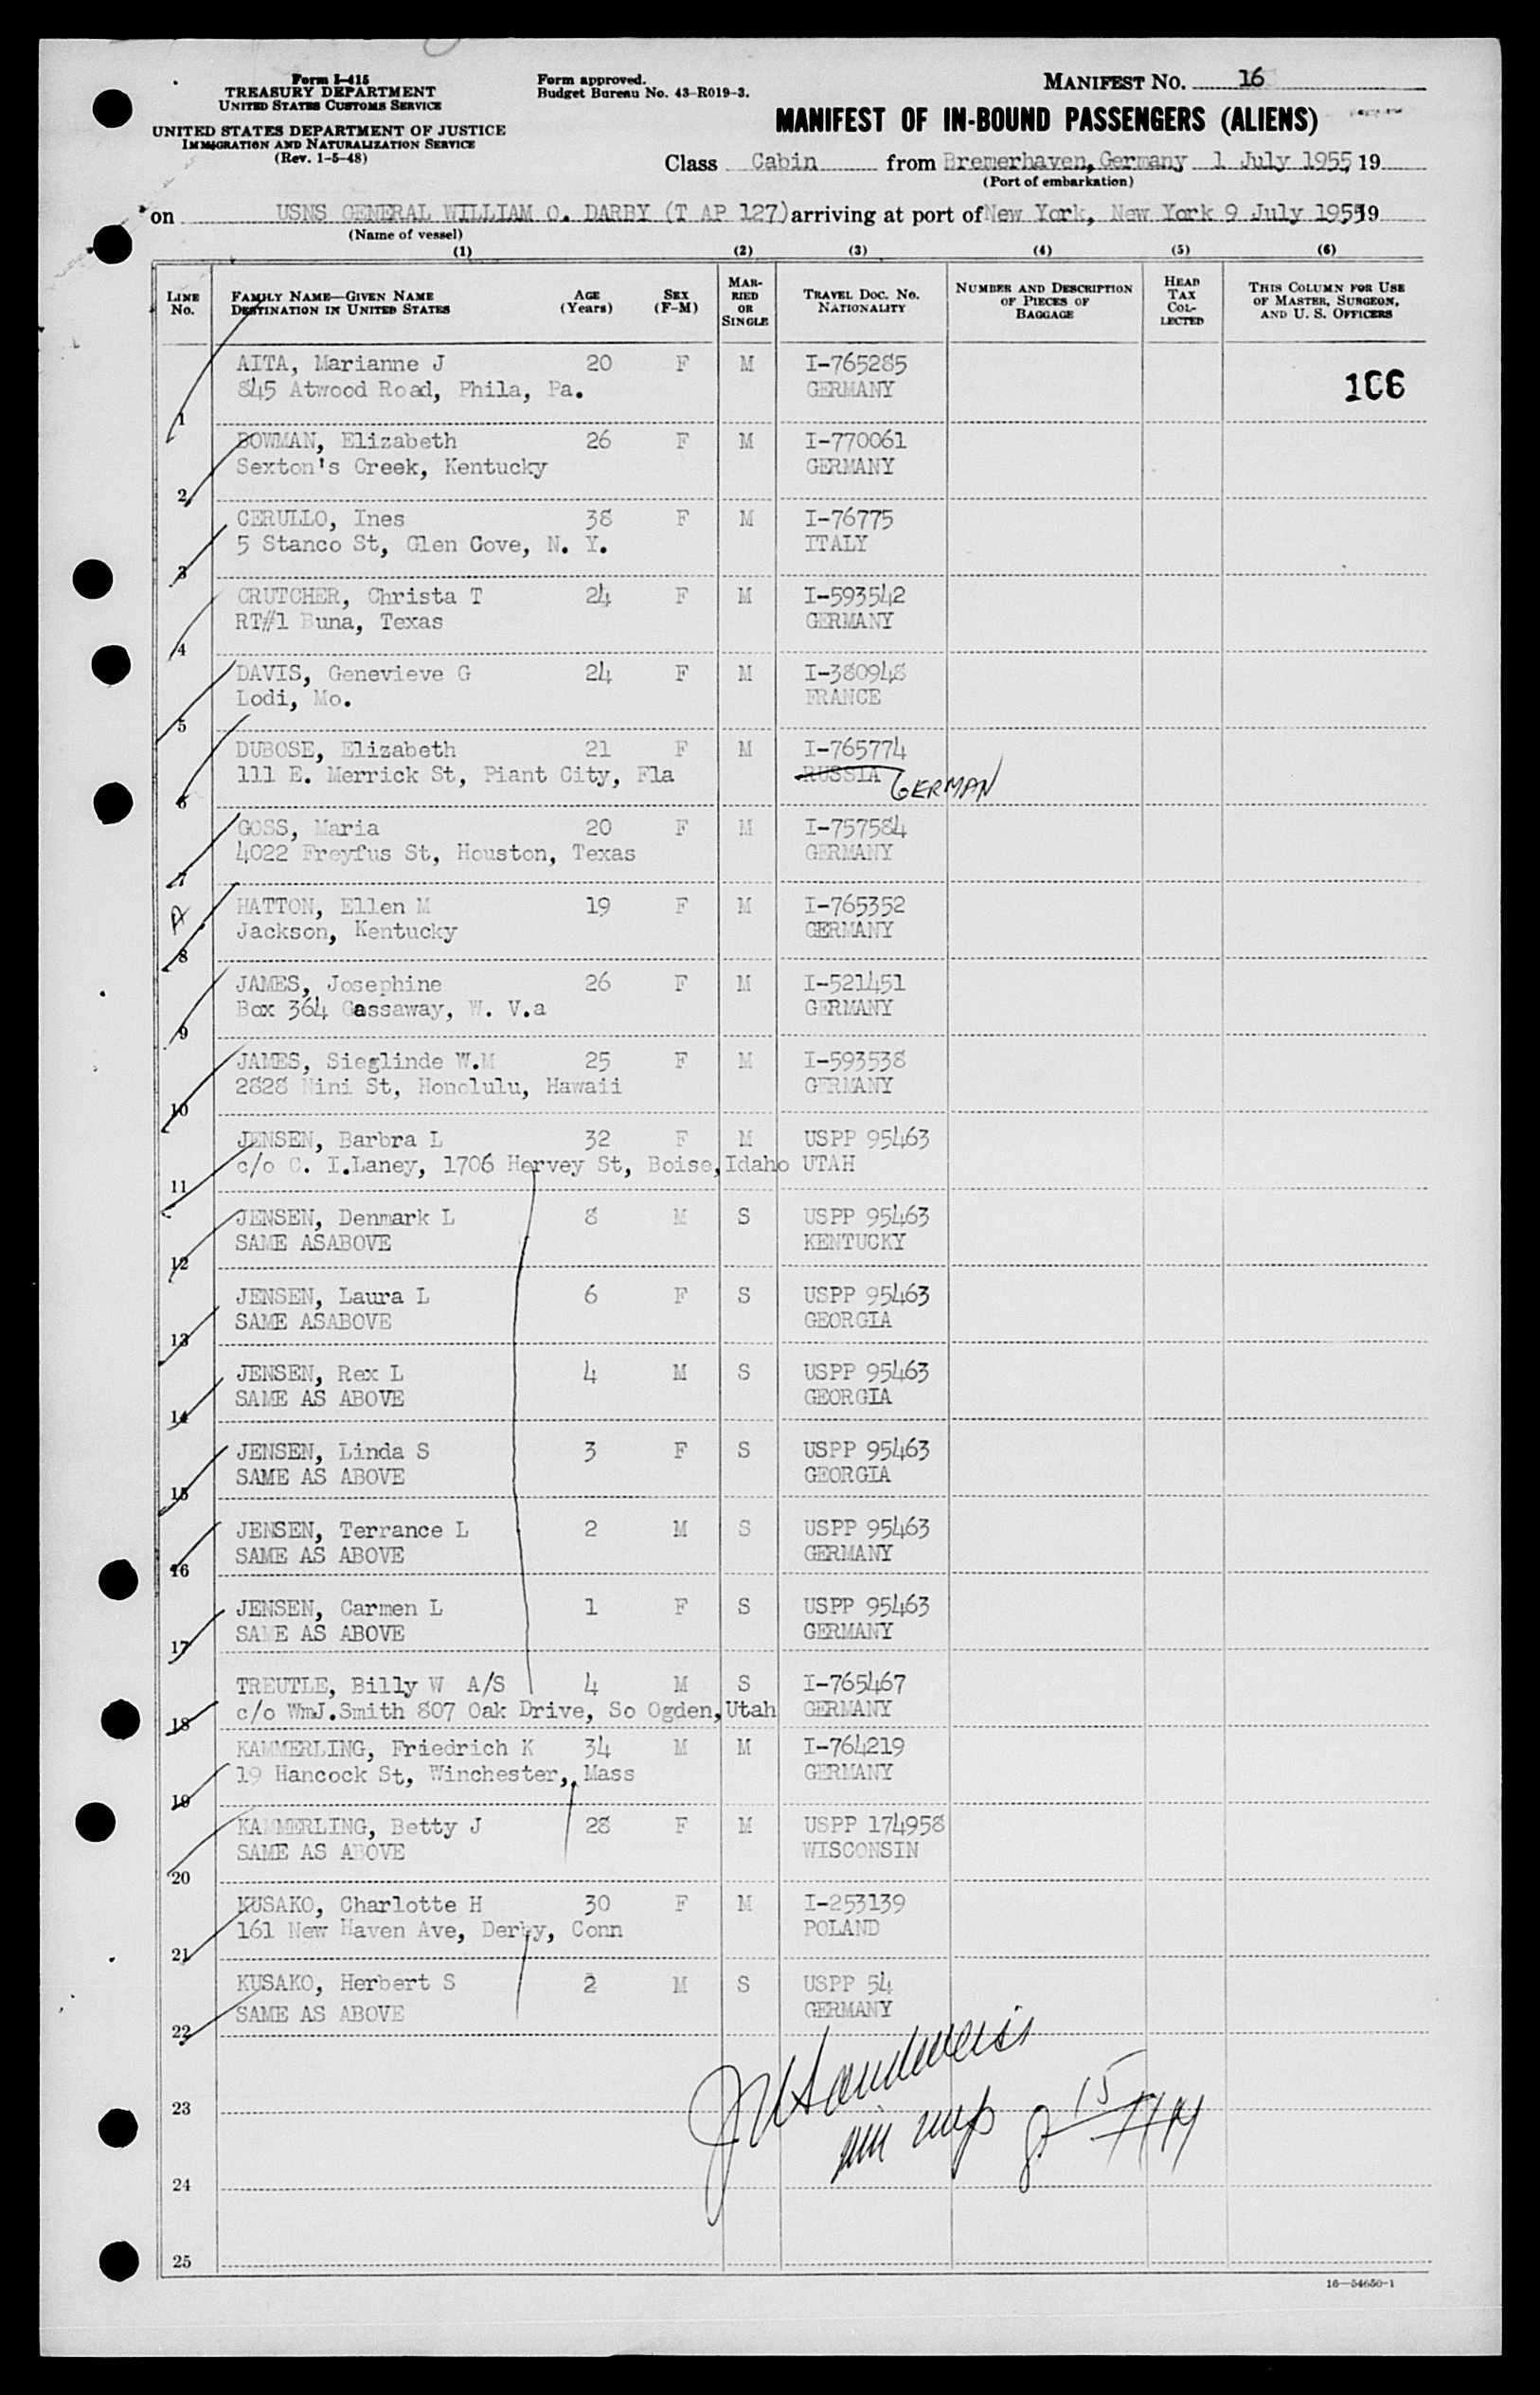 Form I-415
TREASURY DEPARTMENT
UNITED STATES CUSTOMS SERVICE
UNITED STATES DEPARTMENT OF JUSTICE
IMMIGRATION AND NATURALIZATION SERVICE
(Rev. 1-5-48)
Form approved.
Budget Bureau No. 43-R019-3.
MANIFEST NO. 16
MANIFEST OF IN-BOUND PASSENGERS (ALIENS)
Class Cabin from Bremerhaven, Germany 1 July 1955, 19
(Port of embarkation)
on USNS GENERAL WILLIAM O. DARBY (T AP 127) arriving at port of New York, New York 9 July 1955, 19
(Name of vessel)
(1) (2) (3) (4) (5) (6)
LINE NO. FAMILY NAME—GIVEN NAME DESTINATION IN UNITED STATES AGE (Years) SEX (F-M) MARRIED OR SINGLE TRAVEL DOC. NO. NATIONALITY NUMBER AND DESCRIPTION OF PIECES OF BAGGAGE HEAD TAX COLLECTED THIS COLUMN FOR USE OF MASTER, SURGEON, AND U. S. OFFICERS
AITA, Marianne J 20 F M I-765285
845 Atwood Road, Phila, Pa. GERMANY 106
1
BOWMAN, Elizabeth 26 F M I-770061
Sexton's Creek, Kentucky GERMANY
2
CERULLO, Ines 38 F M I-76775
5 Stanco St, Glen Cove, N. Y. ITALY
3
CRUTCHER, Christa T 24 F M I-593542
RT#1 Buna, Texas GERMANY
4
DAVIS, Genevieve G 24 F M I-380948
Lodi, Mo. FRANCE
5
DUBOSE, Elizabeth 21 F M I-765774
111 E. Merrick St, Piant City, Fla RUSSIA GERMAN
6
GOSS, Maria 20 F M I-757584
4022 Freyfus St, Houston, Texas GERMANY
7
HATTON, Ellen M 19 F M I-765352
Jackson, Kentucky GERMANY
8
JAMES, Josephine 26 F M I-521451
Box 364 Gassaway, W. V.a GERMANY
9
JAMES, Sieglinde W.M 25 F M I-593538
2828 Nini St, Honolulu, Hawaii GERMANY
10
JENSEN, Barbra L 32 F M USPP 95463
c/o C. I.Laney, 1706 Hervey St, Boise, Idaho UTAH
11
JENSEN, Denmark L 8 M S USPP 95463
SAME ASABOVE KENTUCKY
12
JENSEN, Laura L 6 F S USPP 95463
SAME ASABOVE GEORGIA
13
JENSEN, Rex L 4 M S USPP 95463
SAME AS ABOVE GEORGIA
14
JENSEN, Linda S 3 F S USPP 95463
SAME AS ABOVE GEORGIA
15
JENSEN, Terrance L 2 M S USPP 95463
SAME AS ABOVE GERMANY
16
JENSEN, Carmen L 1 F S USPP 95463
SAME AS ABOVE GERMANY
17
TREUTLE, Billy W A/S 4 M S I-765467
c/o WmJ.Smith 807 Oak Drive, So Ogden, Utah GERMANY
18
KAMMERLING, Friedrich K 34 M M I-764219
19 Hancock St, Winchester, Mass GERMANY
19
KAMMERLING, Betty J 28 F M USPP 174958
SAME AS ABOVE WISCONSIN
20
KUSAKO, Charlotte H 30 F M I-253139
161 New Haven Ave, Derby, Conn POLAND
21
KUSAKO, Herbert S 2 M S USPP 54
SAME AS ABOVE GERMANY
22
23
24
25
16—54650-1